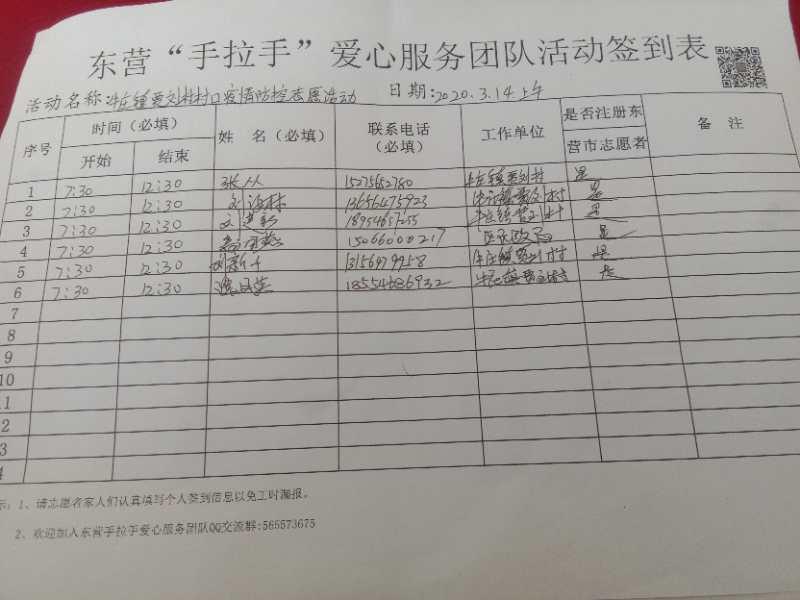 东营“手拉手”爱心服务团队活动签到表
活动名称:牛庄镇贾刘村村口疫情防控志愿活动 日期:2020.3.14上午
序号 时间（必填） 姓 名（必填） 联系电话（必填） 工作单位 是否注册东营市志愿者 备 注
开始 结束
1 7:30 12:30 张从 15275652780 牛庄镇贾刘村 是
2 7:30 12:30 13656475923 是
3 7:30 12:30 18954657255 是
4 7:30 12:30 15066000217 是
5 7:30 12:30 13156479958 是
6 7:30 12:30 18554686932 是
7
8
9
10
11
2
3
4
示：1、请志愿者家人们认真填写个人签到信息以免工时漏报。
2、欢迎加入东营手拉手爱心服务团队QQ交流群:565573675